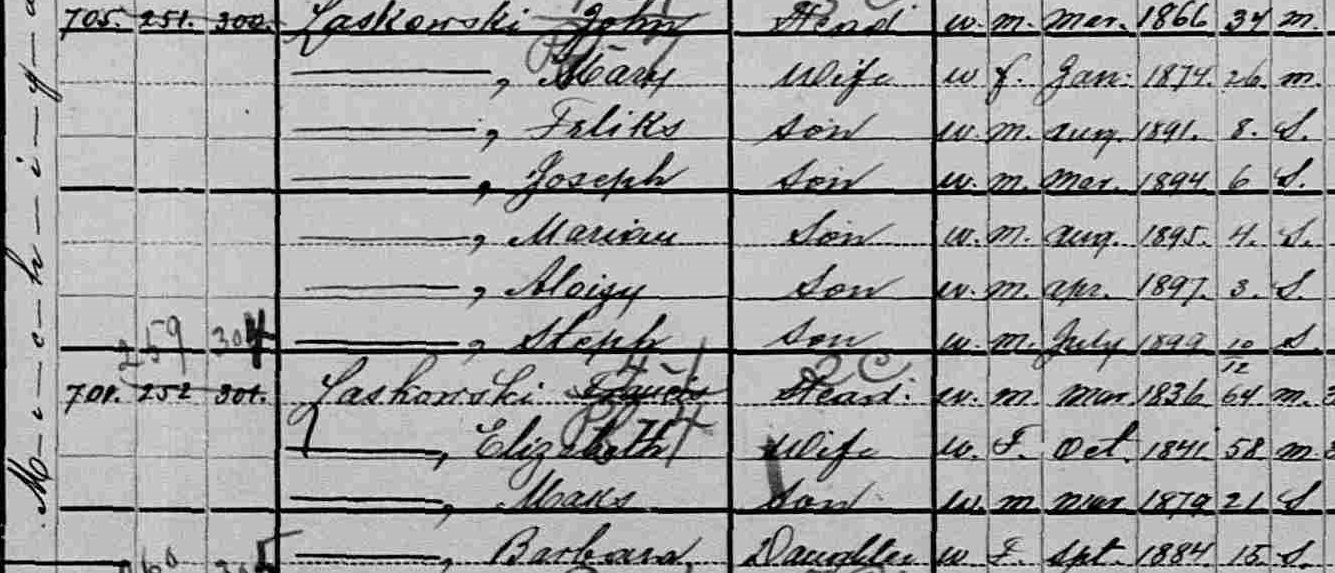 M-c-c-h-i-g-a
705. 251. 300. Laskowski John Head w. m. Mar. 1866 34 m.
, Mary Wife w f. Jan. 1874. 26. m.
, Feliks Son w. m. aug. 1891. 8. S.
, Joseph Son w. m. Mar. 1894 6 S.
, Marian Son w. m. aug. 1895. 4. S.
, Aloisy Son w. m. apr. 1897. 3. S.
259 304 , Steph Son w. m. July 1899 10/12 S.
701. 252 301. Laskowski Head. w. m. Mar 1836 64 m.
, Elizabeth Wife w. F. Oct. 1841 58 m
, Maks Son w. m Mar 1879 21 S.
260 305 , Barbara, Daughter w F. Spt. 1884 15 S.